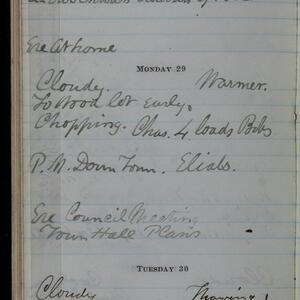 Eve At home
MONDAY 29
Cloudy. Warmer.
To Wood lot Early.
Chopping. Chas. 4 loads
P.M. Down Town.
Eve Council Meeting
Town Hall Plans
TUESDAY 30
Cloudy Thawing